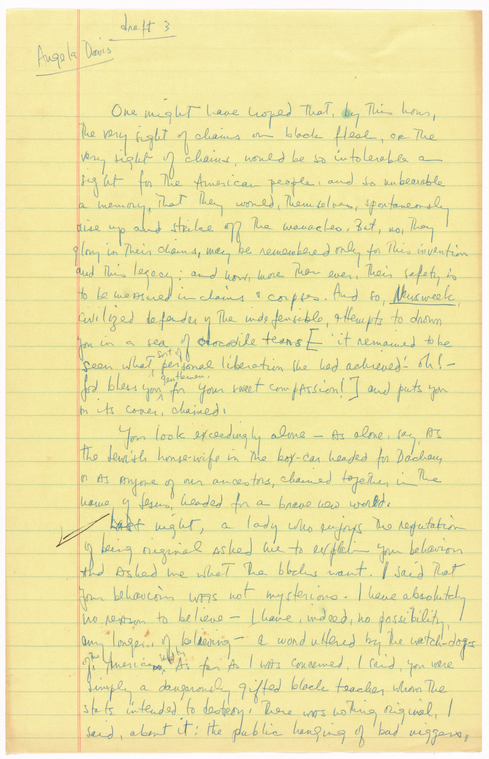 draft 3
Angela Davis
One might have hoped that, by this hour,
the very sight of chains on black flesh, or the
very sight of chains, would be so intolerable a
sight for the American people, and so unbearable
a memory, that they would, themselves, spontaneously
rise up and strike off the manacles. But, no, they
glory in their chains, may be remembered only for this invention
and this legacy: and now, more than ever, their safety is
to be measured in chains & corpses. And so, Newsweek,
civilized defender of the indefensible, attempts to drown
you in a sea of crocodile tears [ it remained to be
seen what sort of personal liberation she had achieved - oh! -
God bless you, gentlemen, for your sweet compassion! ] and puts you
on its cover, chained.
You look exceedingly alone - as alone, say, as
the Jewish house-wife in the box-car headed for Dachau,
or as anyone of our ancestors, chained together in the
name of Jesus, headed for a brave new world.
Last night, a lady who enjoys the reputation
of being original asked me to explain your behavior
and asked me what the blacks want. I said that
your behavior was not mysterious. I have absolutely
no reason to believe - I have, indeed, no possibility,
any longer, of believing - a word uttered by the watch-dogs
of the American As far as I was concerned, I said, you were
simply a dangerously gifted black teacher whom the
state intended to destroy: there was nothing original, I
said, about it: the public hanging of bad niggers,